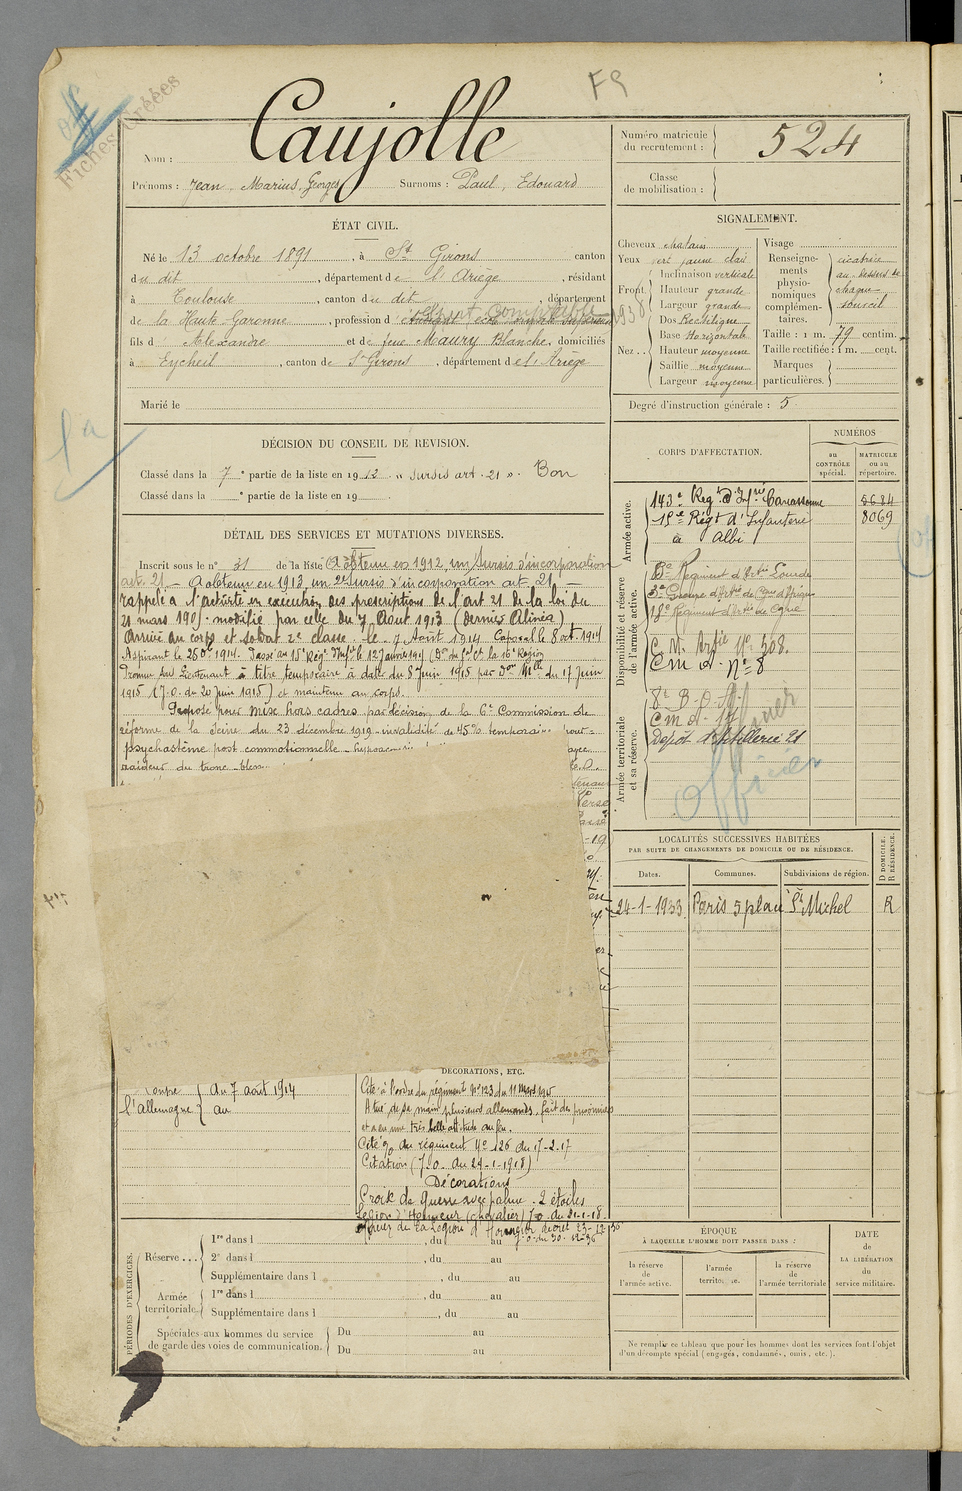 F9
Fiches créées
Nom : Caujolle
Prénoms : Jean, Marius, Georges Surnoms : Paul, Edouard
Numéro matricule du recrutement : 524
Classe de mobilisation :
ÉTAT CIVIL.
Né le 13 octobre 1891, à St Girons canton
du dit, département de l'Ariège, résidant
à Toulouse, canton du dit, département
de la Haute Garonne, profession d' Expert Comptable 1938
fils d' Alexandre et de feue Maury Blanche, domiciliés
à Eycheil, canton de St Girons, département de l'Ariège
Marié le
SIGNALEMENT.
Cheveux chatain
Yeux vert jaune clair
Front Inclinaison verticale
Hauteur grande
Largeur grande
Nez Dos Rectiligne
Base Horizontale
Hauteur moyenne
Saillie moyenne
Largeur moyenne
Visage
Renseignements physionomiques complémentaires. cicatrice au dessus de chaque sourcil
Taille : 1 m. 79 centim.
Taille rectifiée : 1 m. cent.
Marques particulières.
Degré d'instruction générale : 5
DÉCISION DU CONSEIL DE REVISION.
Classé dans la 7e partie de la liste en 1912 "sursis art. 21". Bon
Classé dans la e partie de la liste en 19
DÉTAIL DES SERVICES ET MUTATIONS DIVERSES.
Inscrit sous le n° 31 de la liste A obtenu en 1912, un sursis d'incorporation
art. 21 — A obtenu en 1913, un 2e sursis d'incorporation art. 21 —
rappelé à l'activité en exécution des prescriptions de l'art 21 de la loi du
21 mars 1905 modifié par celle du 7 Aout 1913 (dernier alinéa)
Arrivé au corps et soldat 2e classe le 7 Août 1914 Caporal le 8 oct. 1914
Aspirant le 26 1914. Passé au 15e Régt d'Infie le 12 Janvier 1915
Promu Sous Lieutenant à titre temporaire à dater du 8 Juin 1915 par Don Mlle du 17 Juin
1915 (J.O. du 20 Juin 1915) et maintenu au corps.
Proposé pour mise hors cadres par décision de la 6e Commission de
réforme de la Seine du 23 décembre 1919 - invalidité de 45% temporaire pour =
psychasténie post commotionnelle -
raideur du tronc -
CORPS D'AFFECTATION.
NUMÉROS
au CONTRÔLE spécial.
MATRICULE ou au répertoire.
Armée active.
143e Regt d'Infie Carcassonne 5684
15e Régt d'Infanterie à Albi 8069
Disponibilité et réserve de l'armée active.
Régiment d'Artie Lourde
3e Groupe d'Artie de Camp. d'Afrique
18e Régiment d'Artie de Cagne
C. M. Artie N° 308.
C m a. N° 8
Armée territoriale et sa réserve.
8e B.O.A.
C m a. 17
Dépôt d'artillerie 21
Officier
LOCALITÉS SUCCESSIVES HABITÉES
PAR SUITE DE CHANGEMENTS DE DOMICILE OU DE RÉSIDENCE.
Dates. Communes. Subdivisions de région. D DOMICILE; R RÉSIDENCE.
24-1-1933 Paris 5 place St Michel R
contre l'allemagne du 7 août 1914
au
DÉCORATIONS, ETC.
Cité à l'ordre du régiment N° 123 du 11 Mars 1915
A tué de sa main plusieurs allemands, fait des prisonniers
et a eu une très belle attitude au feu.
Cité % du régiment N° 126 du 17-2-17
Citation (J.O. du 24-1-1918)
Décorations
Croix de Guerre avec palme. 2 étoiles
Légion d'Honneur (chevalier) J.O. du 21-1-18
officier de la Légion d'Honneur décret 23-12-36
J.O. du 30-12-36
PÉRIODES D'EXERCICES.
Réserve ... 1re dans l , du au
2e dans l , du au
Supplémentaire dans l , du au
Armée territoriale. 1re dans l , du au
Supplémentaire dans l , du au
Spéciales aux hommes du service de garde des voies de communication. Du au
Du au
ÉPOQUE
À LAQUELLE L'HOMME DOIT PASSER DANS :
la réserve de l'armée active.
l'armée territoriale.
la réserve de l'armée territoriale
DATE de LA LIBÉRATION du service militaire.
Ne remplir ce tableau que pour les hommes dont les services font l'objet
d'un décompte spécial (engagés, condamnés, omis, etc.).